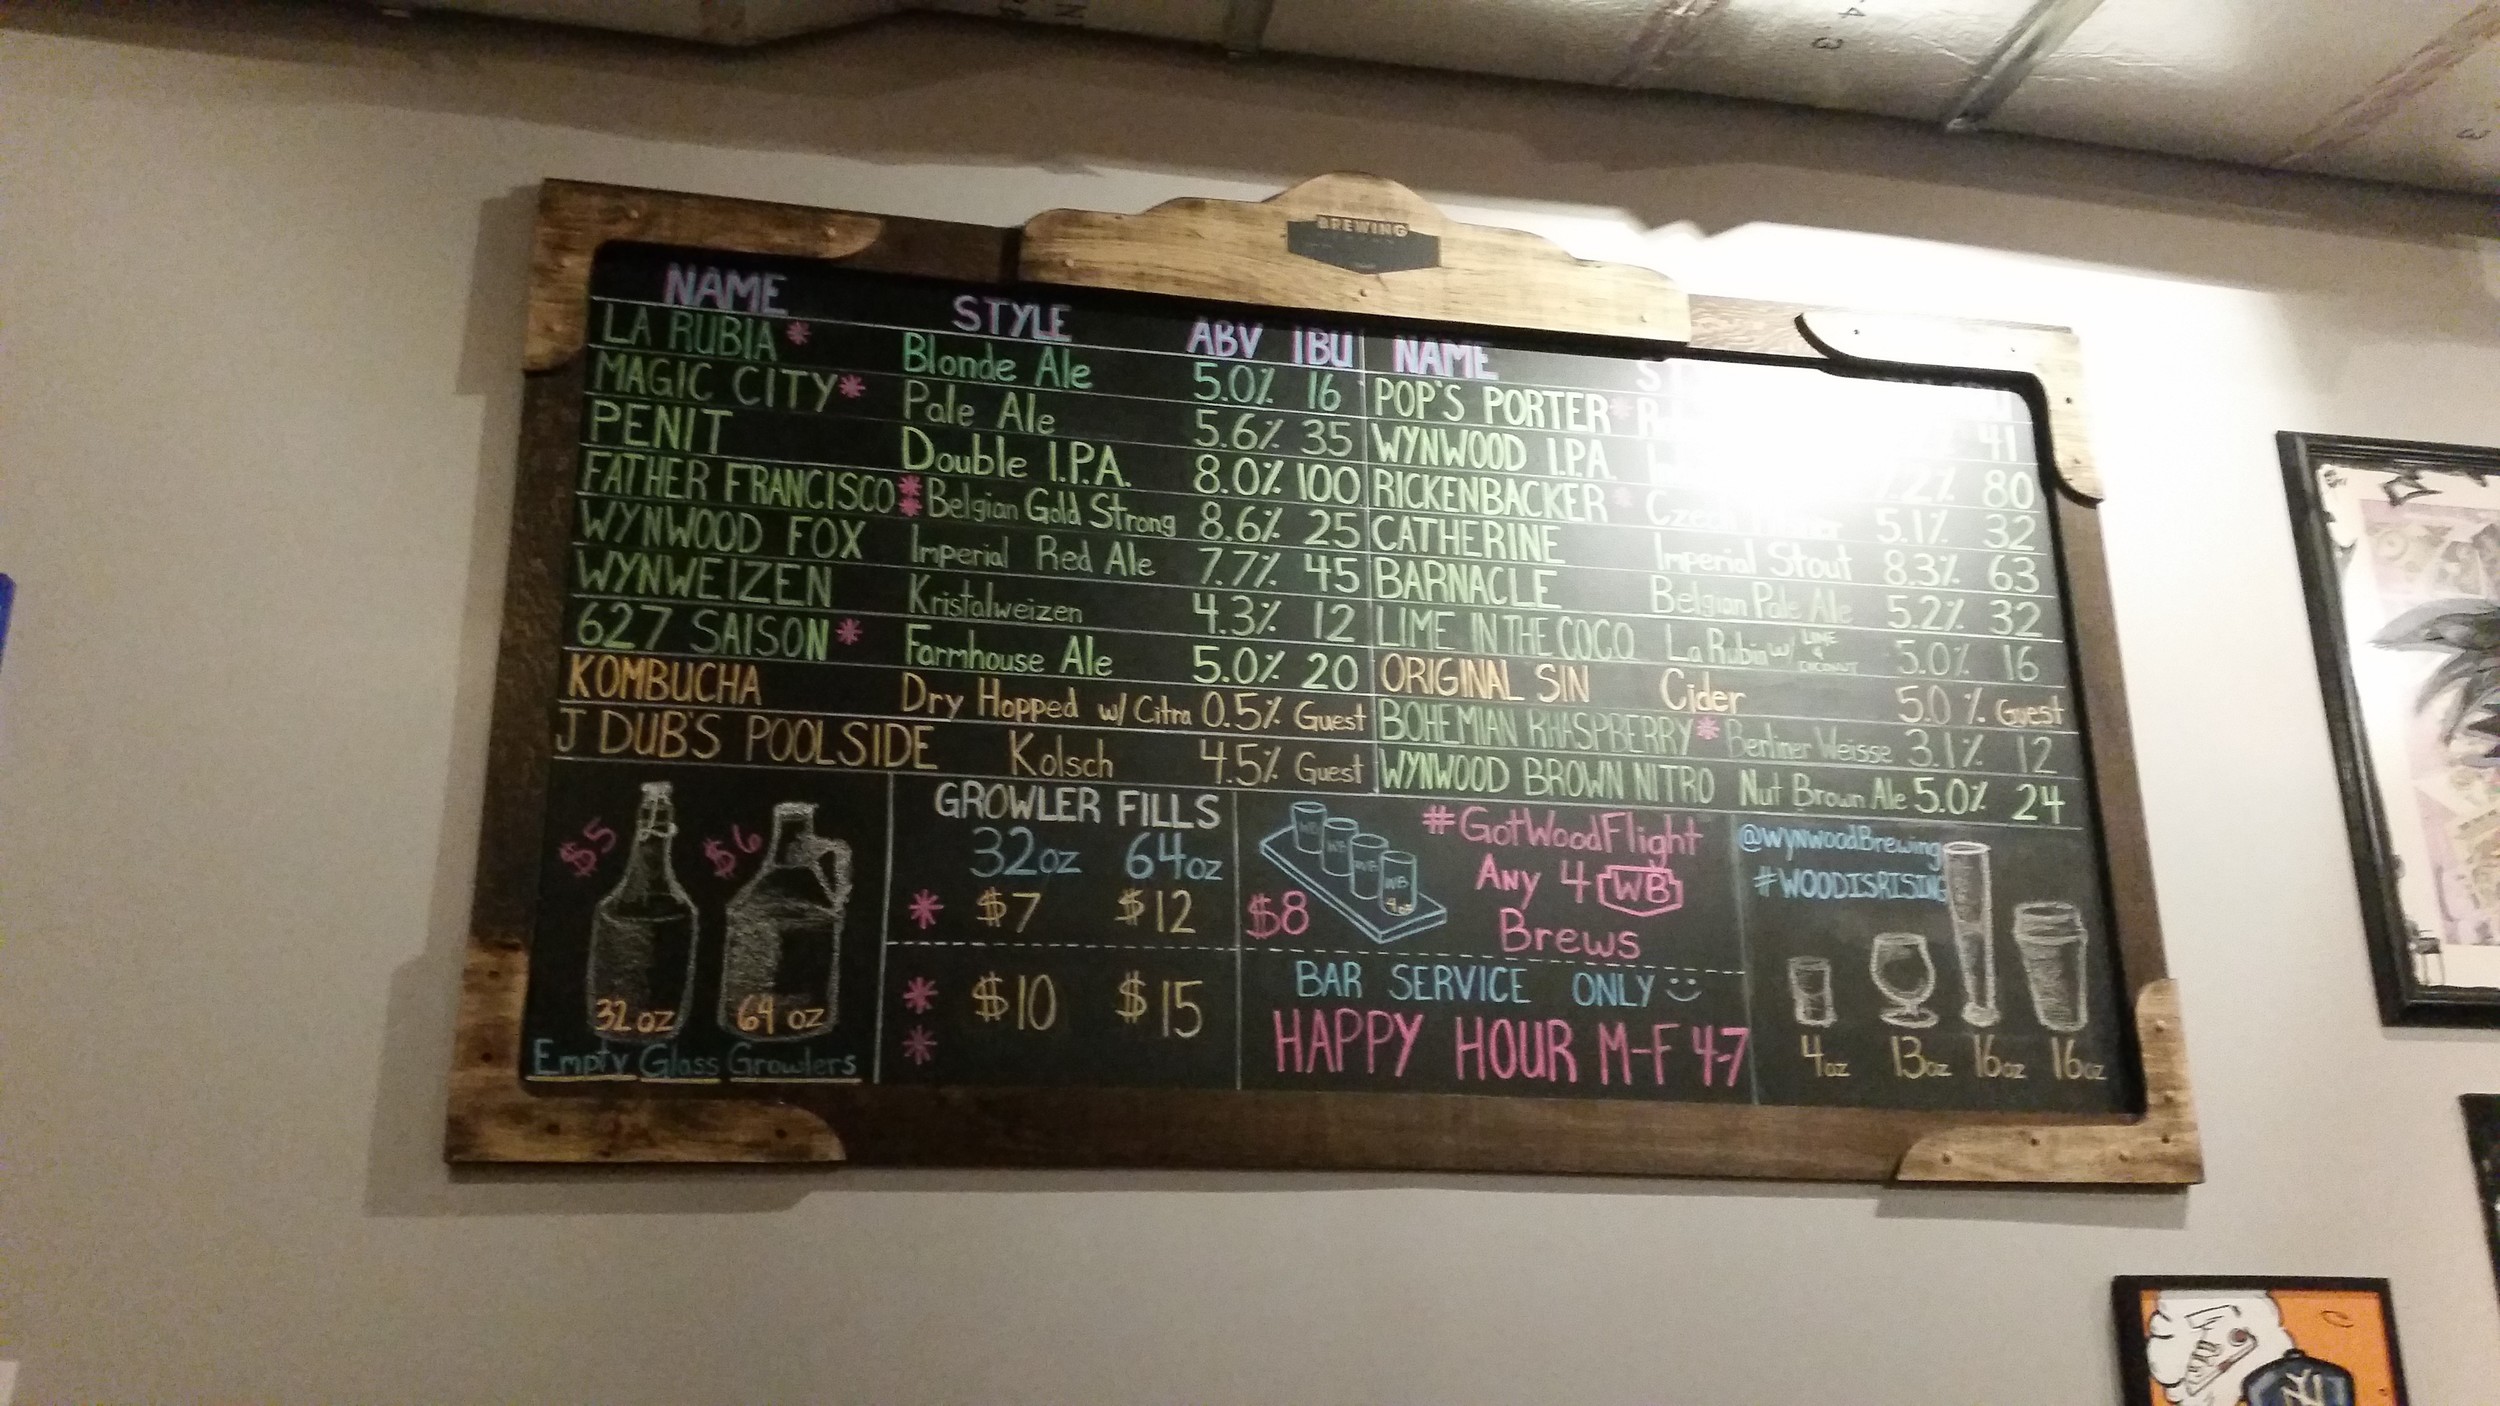 BREWING
NAME STYLE ABV IBU
LA RUBIA * Blonde Ale 5.0% 16
MAGIC CITY * Pale Ale 5.6% 35
PENIT Double I.P.A. 8.0% 100
FATHER FRANCISCO ** Belgian Gold Strong 8.6% 25
WYNWOOD FOX Imperial Red Ale 7.7% 45
WYNWEIZEN Kristalweizen 4.3% 12
627 SAISON * Farmhouse Ale 5.0% 20
KOMBUCHA Dry Hopped w/ Citra 0.5% Guest
J DUB'S POOLSIDE Kolsch 4.5% Guest
NAME
POP'S PORTER * 41
WYNWOOD I.P.A. 80
RICKENBACKER * Czech 5.1% 32
CATHERINE Imperial Stout 8.3% 63
BARNACLE Belgian Pale Ale 5.2% 32
LIME IN THE COCO La Rubia w/ LIME & COCONUT 5.0% 16
ORIGINAL SIN Cider 5.0% Guest
BOHEMIAN RHASPBERRY * Berliner Weisse 3.1% 12
WYNWOOD BROWN NITRO Nut Brown Ale 5.0% 24
$5 $6
32 oz 64 oz
Empty Glass Growlers
GROWLER FILLS
32oz 64oz
* $7 $12
* $10 $15
*
#GotWoodFlight
Any 4 WB
Brews
$8
WB
4oz
BAR SERVICE ONLY
HAPPY HOUR M-F 4-7
@WynwoodBrewing
#WOODISRISING
4oz 13oz 16oz 16oz